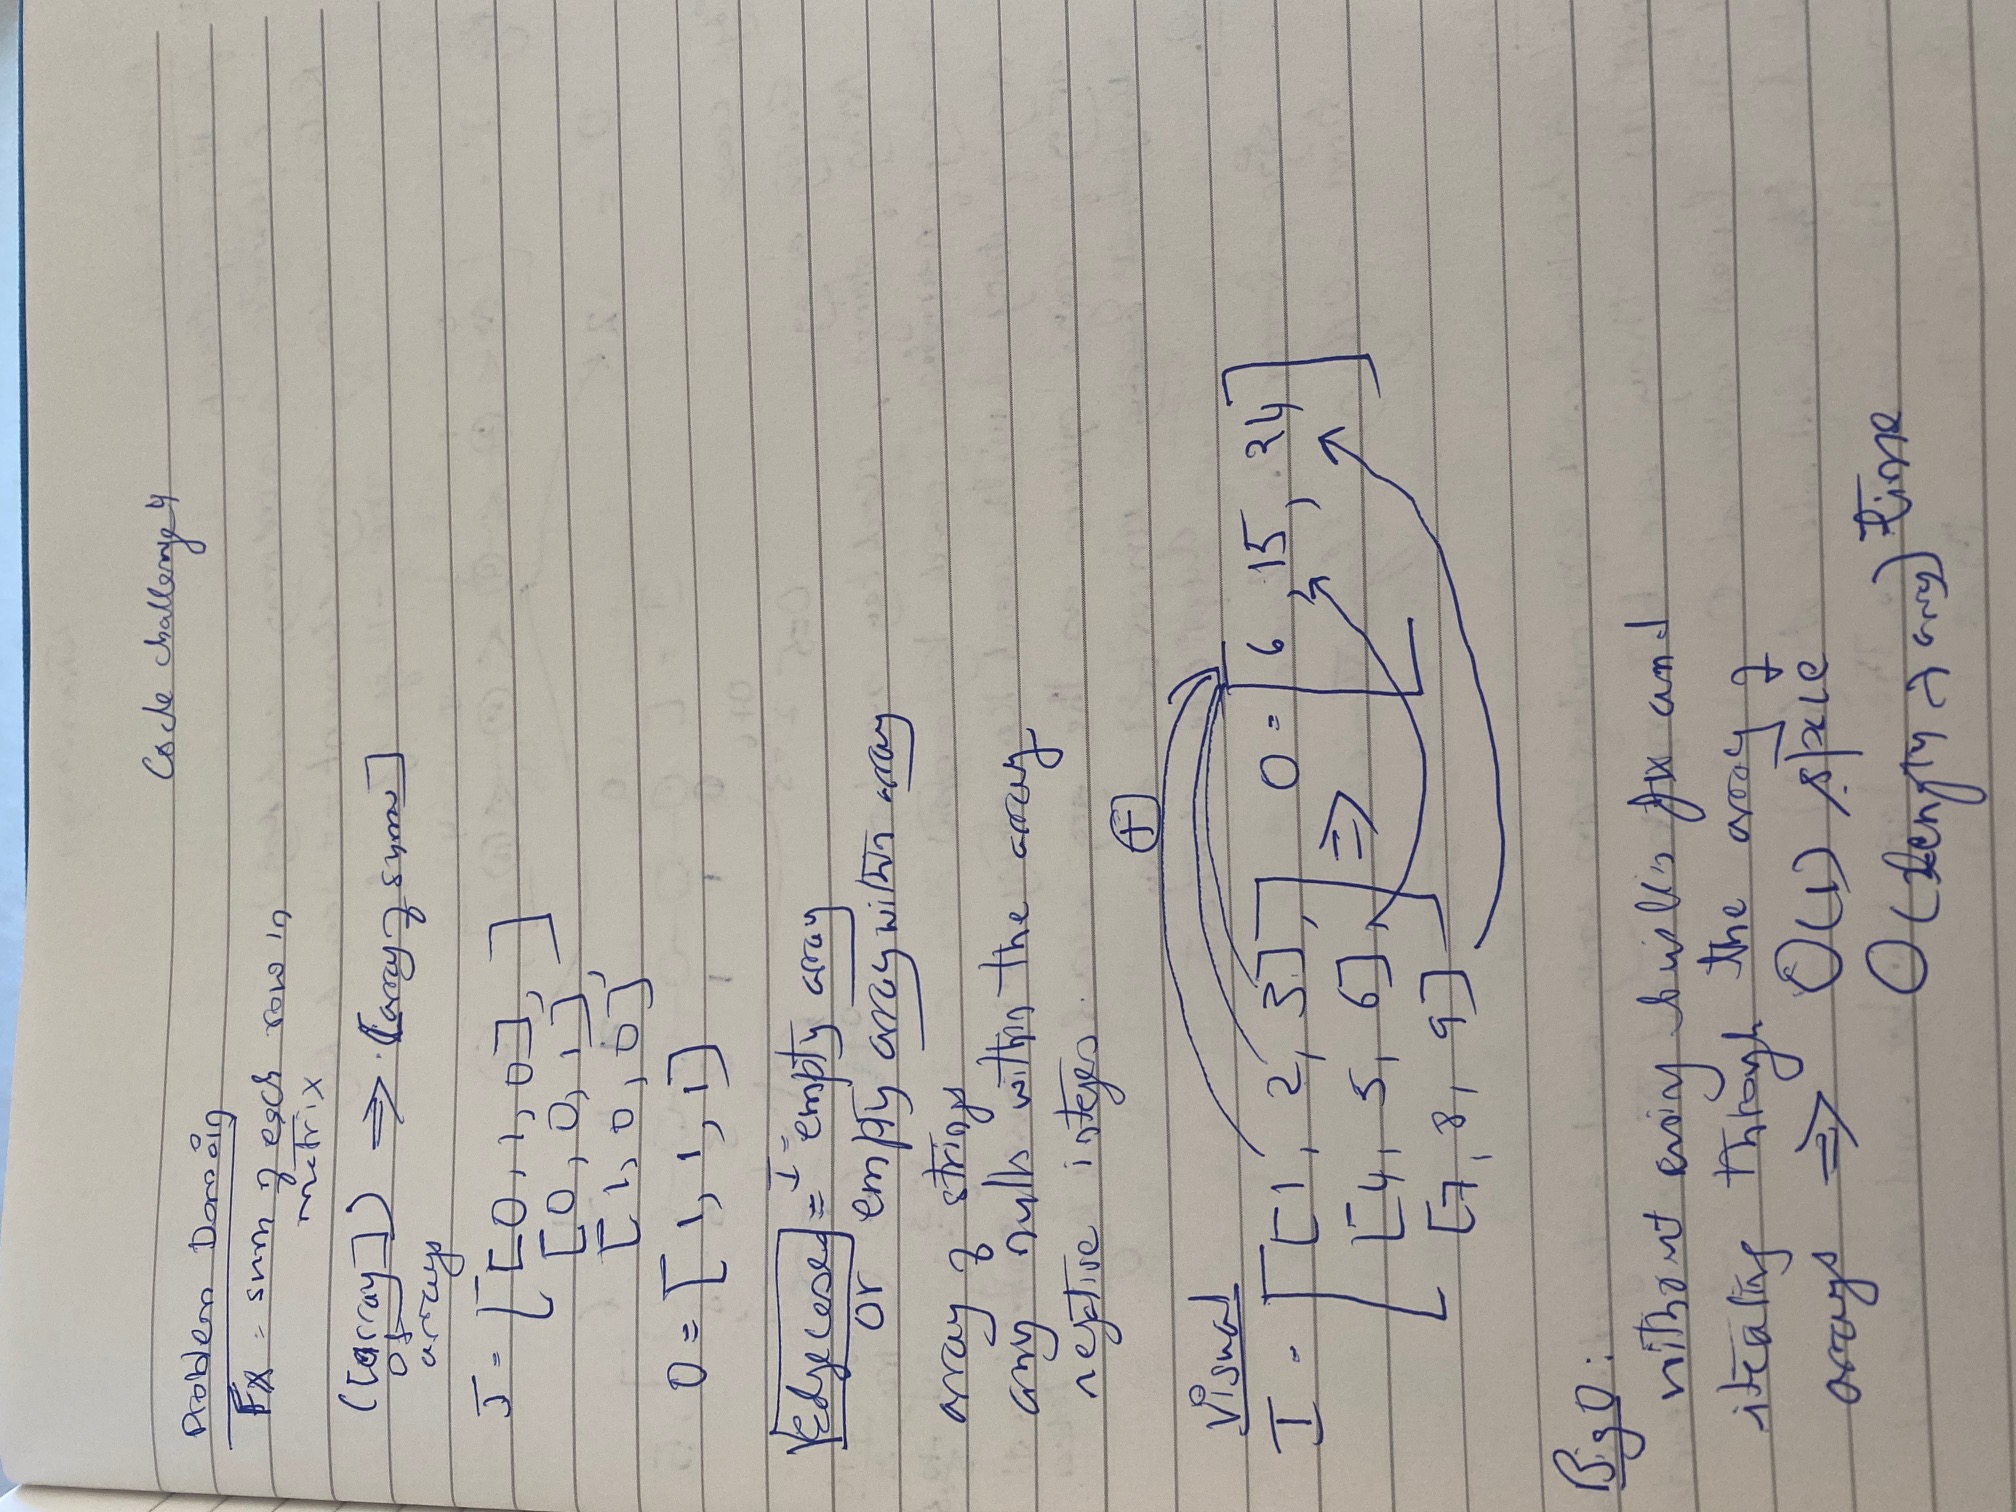 Code challenge 4
Problem Domain
FX = sum of each row in
matrix
([array]) ⇒ [array of sums]
of
arrays
I = [[0, 1, 0], ]
[0, 0, 1],
[1, 0, 0]
O = [1, 1, 1]
Edge cases = I = empty array
or empty array within array
array of strings
any nulls within the array
negative integers.
+
Visual
I = [[1, 2, 3], ] ⇒ O = [6, 15, 24]
[4, 5, 6],
[7, 8, 9]
Big O:
without any fx and
iterating through the array of
arrays ⇒ O(1) space
O(length of array) time